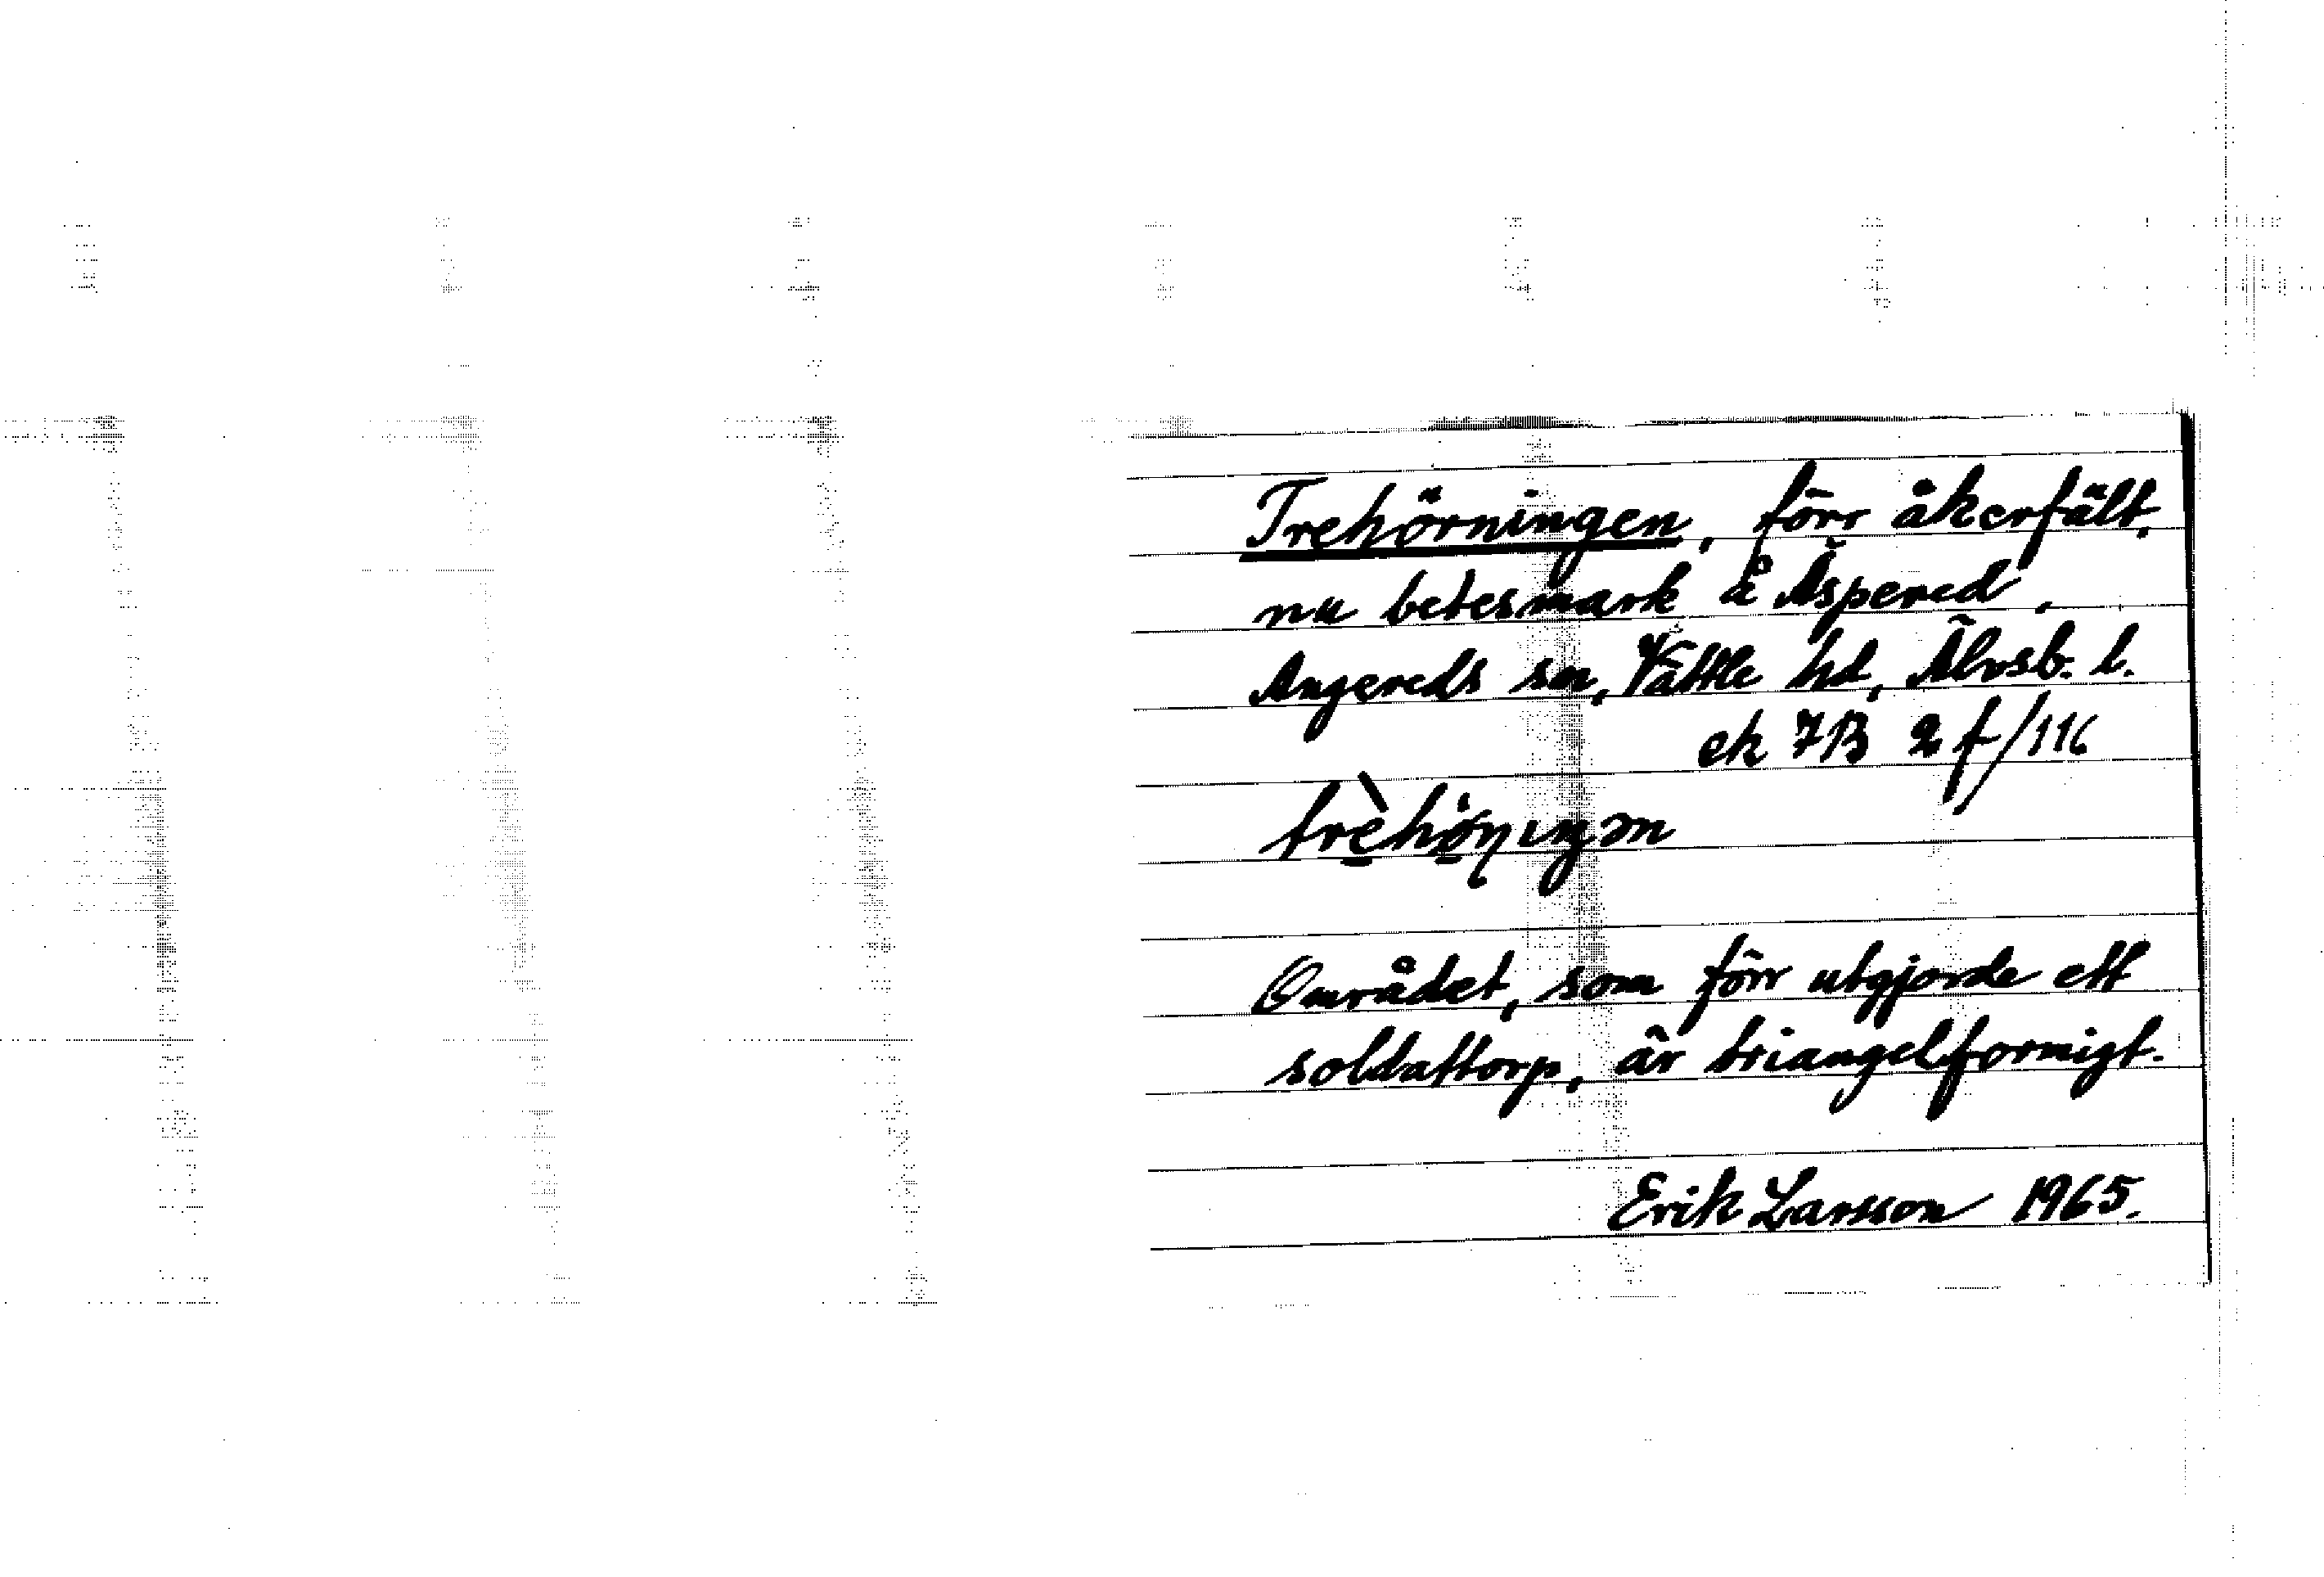 Trehörningen, förr åkerfält,
nu betesmark å Äspered,
Angereds sn, Vättle hd, Älvsb. l.
ek 7B 2f/116
Området, som förr utgjorde ett
soldattorp, är triangelformigt.
Erik Larsson 1965.